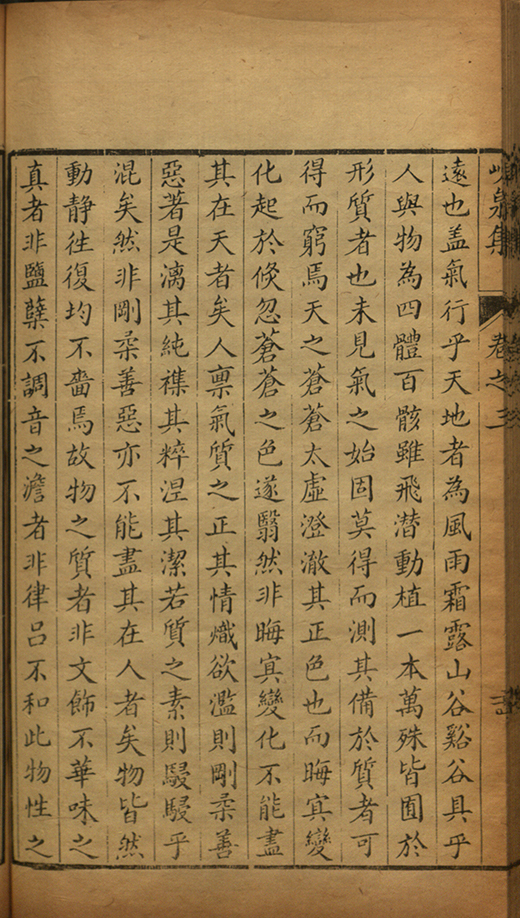 峴泉集
卷之二
遠也盖氣行乎天地者為風雨霜露山谷谿谷具乎
人與物為四體百骸雖飛潛動植一本萬殊皆囿於
形質者也未見氣之始固莫得而測其備於質者可
得而窮焉天之蒼蒼太虛澄澈其正色也而晦冥變
化起於倏忽蒼蒼之色遂翳然非晦冥變化不能盡
其在天者矣人禀氣質之正其情熾欲濫則剛柔善
惡著是漓其純襍其粹涅其潔若質之素則駸駸乎
混矣然非剛柔善惡亦不能盡其在人者矣物皆然
動靜徃復均不啬焉故物之質者非文飾不華味之
真者非鹽蘖不調音之澹者非律呂不和此物性之